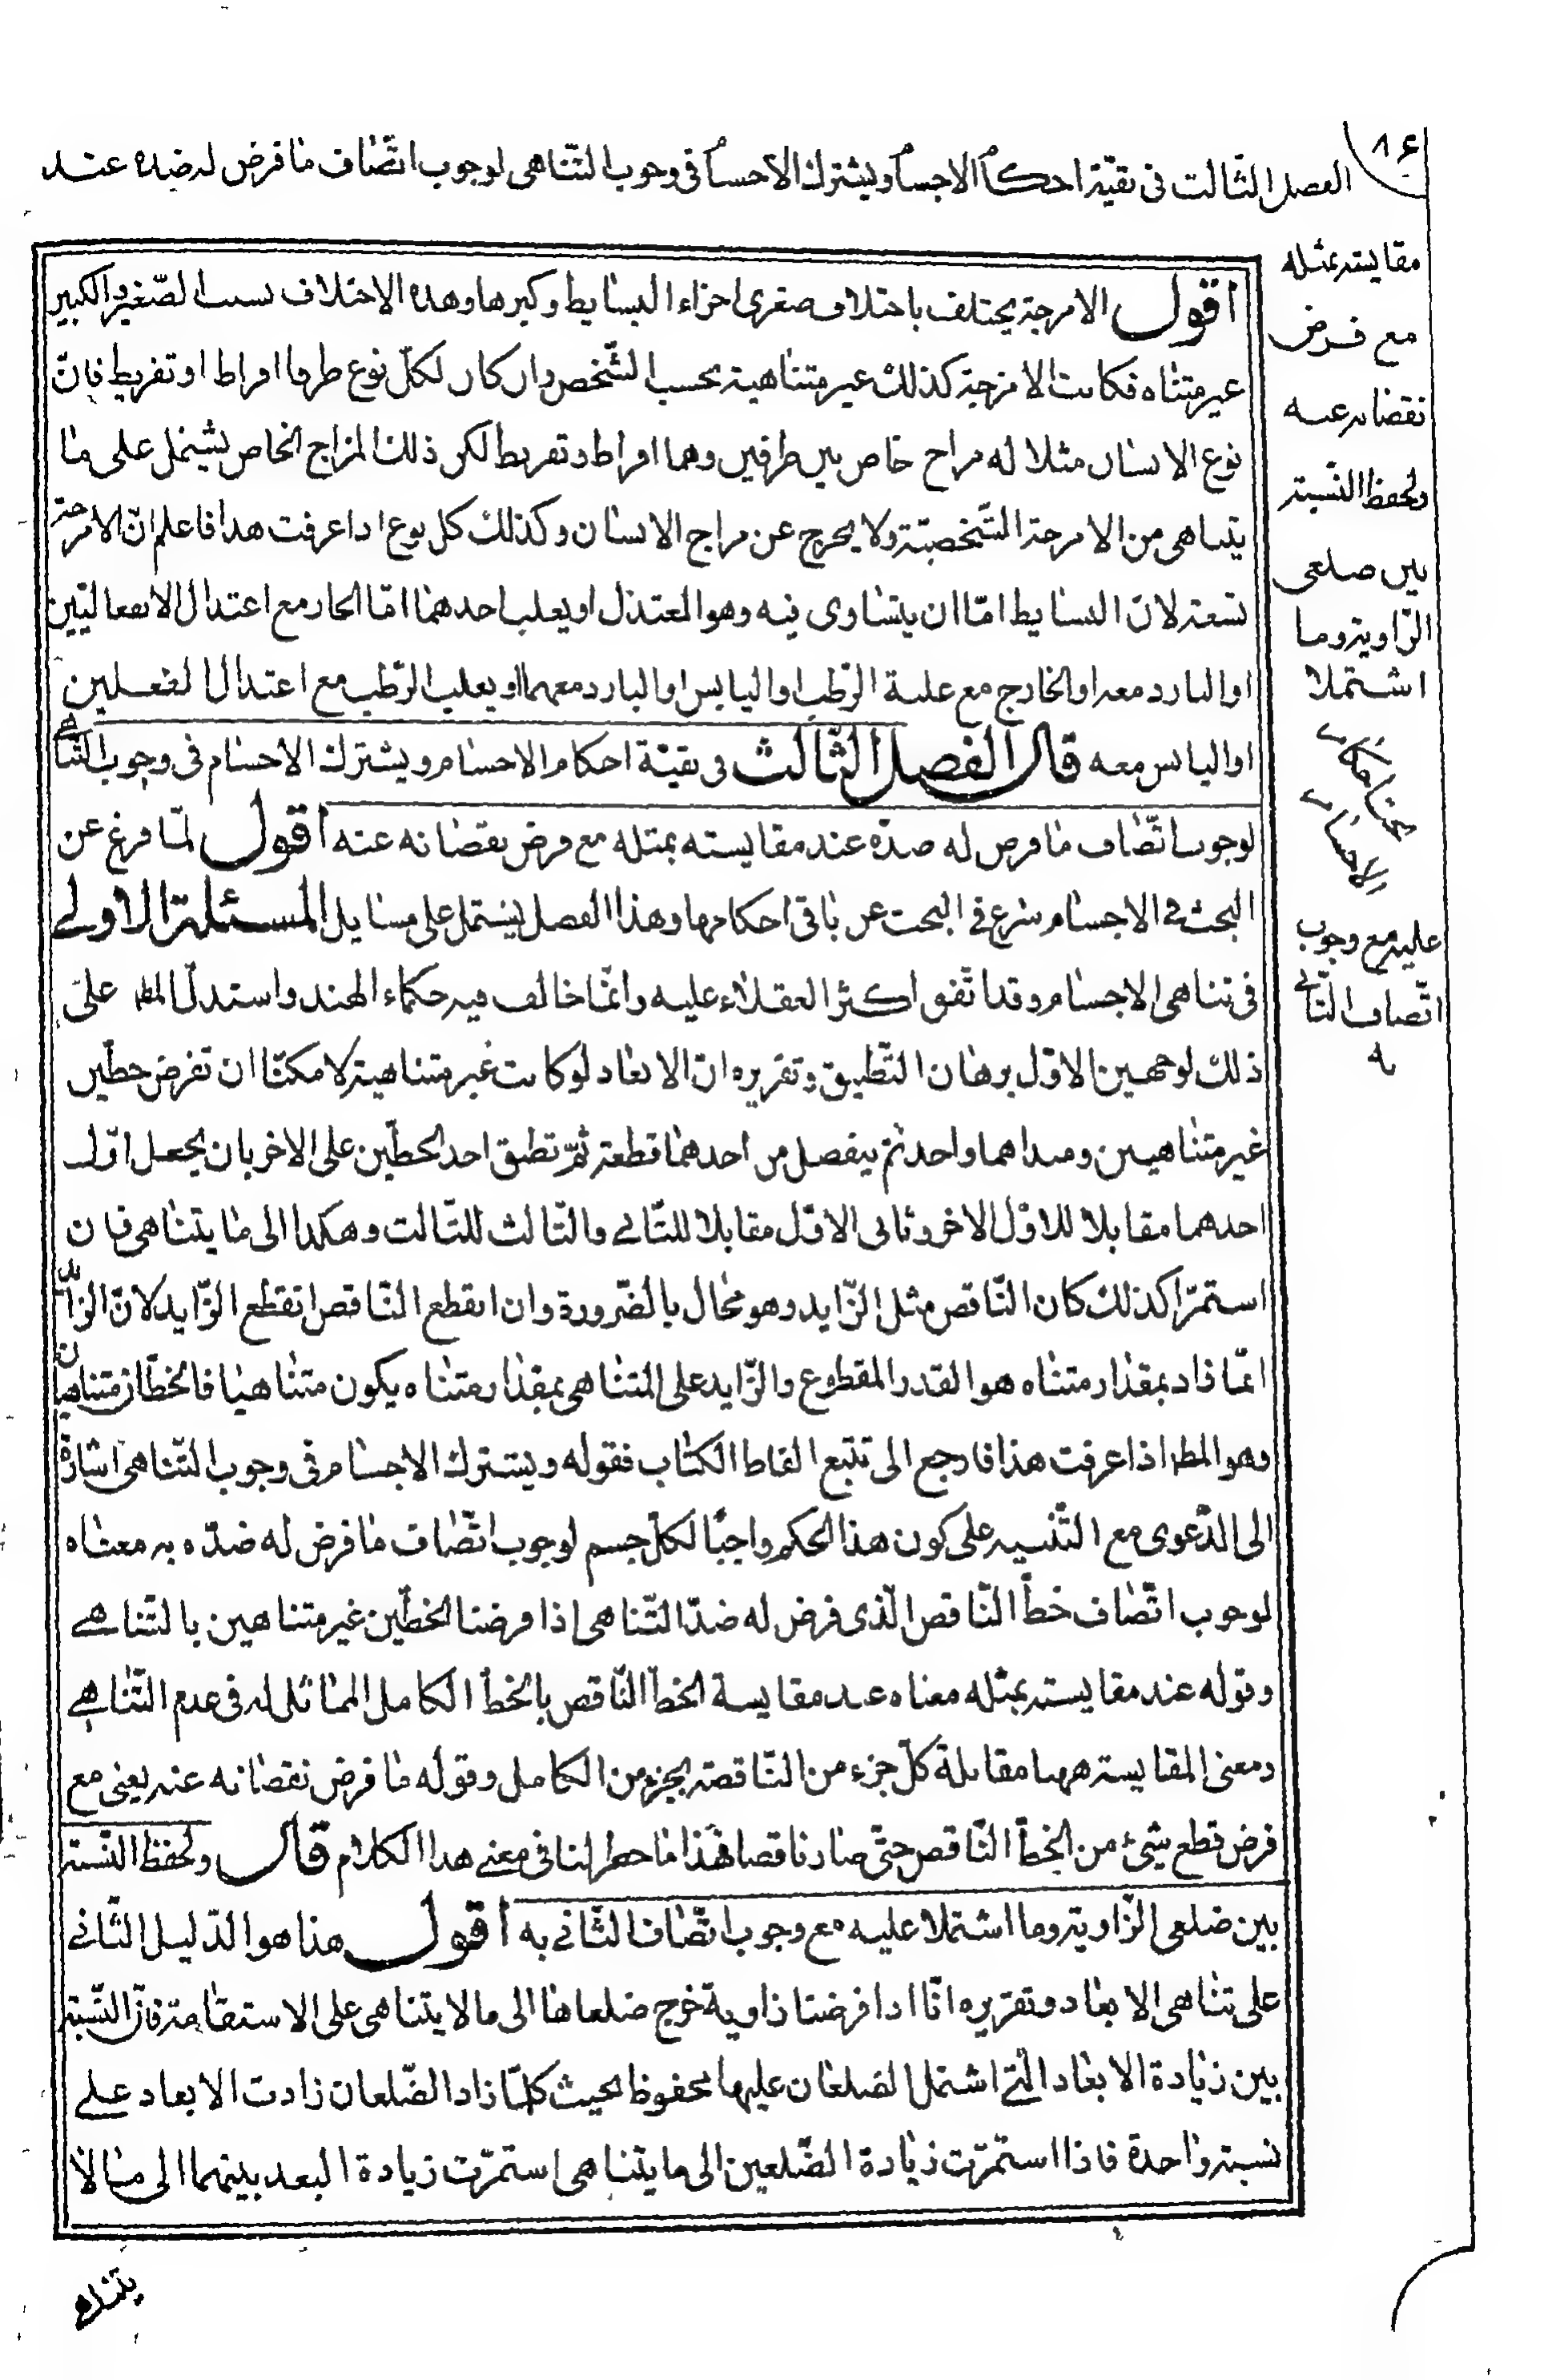 ٨٤
الفصل الثّالث فى بقيّة احكام الاجسام ويشترك الاجسام فى وجوب التّناهى لوجوب اتّصاف ما فرض له ضده عند
مقايسته بمثله
مع فرض
نقصانه عنه
ولحفظ النّسبة
بين ضلعى
الزّاوية وما
اشتملا
عليه مع وجوب
اتّصاف الثّانى
به
اقول الامزجة يختلف باختلاف صغرى اجزاء البسايط وكبرها وهذه الاختلاف بسبب الصّغير والكبير
غير متناه فكانت الامزجة كذلك غير متناهية بحسب الشّخص وان كان لكلّ نوع طرفا افراط او تفريط فانّ
نوع الانسان مثلا له مزاج خاص بين طرفين وهما افراط وتفريط لكن ذلك المزاج الخاص يشتمل على ما
يتناهى من الامزجة الشّخصيّة ولا يخرج عن مزاج الانسان وكذلك كل نوع اذا عرفت هذا فاعلم انّ الامزجة
تسعة لانّ البسايط امّا ان يتساوى فيه وهو المعتدل او يغلب احدهما امّا الحار مع اعتدال الانفعاليّين
او البارد معه او الخارج مع غلبة الرّطب او اليابس او البارد معهما او يغلب الرّطب مع اعتدال الفعلين
او اليابس معه قال الفصل الثّالث فى بقيّة احكام الاجسام ويشترك الاجسام فى وجوب التّناهى
لوجوب اتّصاف ما فرض له ضدّه عند مقايسته بمثله مع فرض نقصانه عنه اقول لمّا فرغ عن
البحث فى الاجسام شرع فى البحث عن باقى احكامها وهذا الفصل يشتمل على مسايل المسئلة الاولى
فى تناهى الاجسام وقد اتّفق اكثر العقلاء عليه وانّما خالف فيه حكماء الهند واستدلّ المط على
ذلك لوجهين الاوّل برهان التّطبيق وتقريره انّ الابعاد لو كانت غير متناهية لامكننا ان نفرض خطّين
غير متناهيين ومبداهما واحد ثم ينفصل من احدهما قطعة ثمّ نطبق احد الخطّين على الاخر بان يجعل اوّل
احدهما مقابلا للاوّل الاخر وثانى الاوّل مقابلا للثّانى والثّالث للثّالث وهكذا الى ما يتناهى فان
استمرّا كذلك كان النّاقص مثل الزّايد وهو محال بالضّرورة وان انقطع النّاقص انقطع الزّايد لانّ الزّايد
انّما زاد بمقدار متناه هو القدر المقطوع والزّايد على المتناهى بمقدار متناه يكون متناهيا فالخطّان متناهيان
وهو المط اذا عرفت هذا فارجع الى تتبع الفاظ الكتاب فقوله ويشترك الاجسام فى وجوب التّناهى اشارة
الى الدّعوى مع التّنبيه على كون هذا الحكم واجبًا لكلّ جسم لوجوب اتّصاف ما فرض له ضدّه به معناه
لوجوب اتّصاف خطّ النّاقص الّذى فرض له ضدّ التّناهى اذا فرضنا الخطّين غير متناهين بالتّناهى
وقوله عند مقايسته بمثله معناه عند مقايسة الخطّ النّاقص بالخطّ الكامل المماثل له فى عدم التّناهى
ومعنى المقايسة ههنا مقابلة كلّ جزء من النّاقصة بجزء من الكامل وقوله ما فرض نقصانه عنه يعنى مع
فرض قطع شىء من الخطّ النّاقص حتّى صار ناقصا فهذا ما خطر لنا فى معنى هذا الكلام قال ولحفظ النّسبة
بين ضلعى الزّاوية وما اشتملا عليه مع وجوب اتّصاف الثّانى به اقول هذا هو الدّليل الثّانى
على تناهى الابعاد وتقريره انّا اذا فرضنا زاوية خرج ضلعاها الى ما لا يتناهى على الاستقامة فانّ النّسبة
بين زيادة الابعاد الّتى اشتمل الضلعان عليها محفوظ بحيث كلّما زاد الضّلعان زادت الابعاد على
نسبة واحدة فاذا استمرّت زيادة الضّلعين الى ما يتناهى استمرّت زيادة البعد بينهما الى ما لا
يتناه